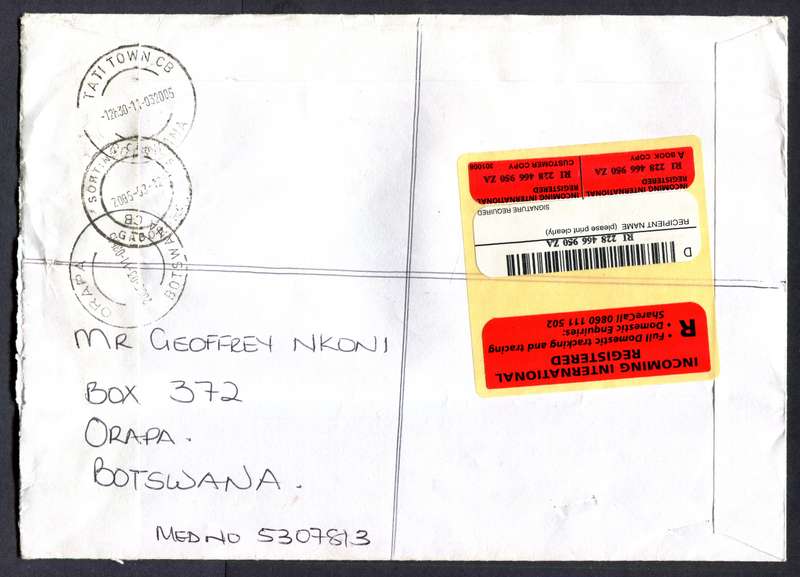 TATI TOWN CB
-12h30-11-032005
SORTING
2005-03-12
GABORONE
BOTSWANA
ORAPA
MR GEOFFREY NKONI
BOX 372
ORAPA.
BOTSWANA.
MED NO 5307813
INCOMING INTERNATIONAL
REGISTERED
R
• Full Domestic tracking and tracing
• Domestic Enquiries:
ShareCall 0860 111 502
D
RI 228 466 950 ZA
RECIPIENT NAME (please print clearly)
SIGNATURE REQUIRED
INCOMING INTERNATIONAL
REGISTERED
RI 228 466 950 ZA
A BOOK COPY
INCOMING INTERNATIONAL
REGISTERED
RI 228 466 950 ZA
CUSTOMER COPY
301006